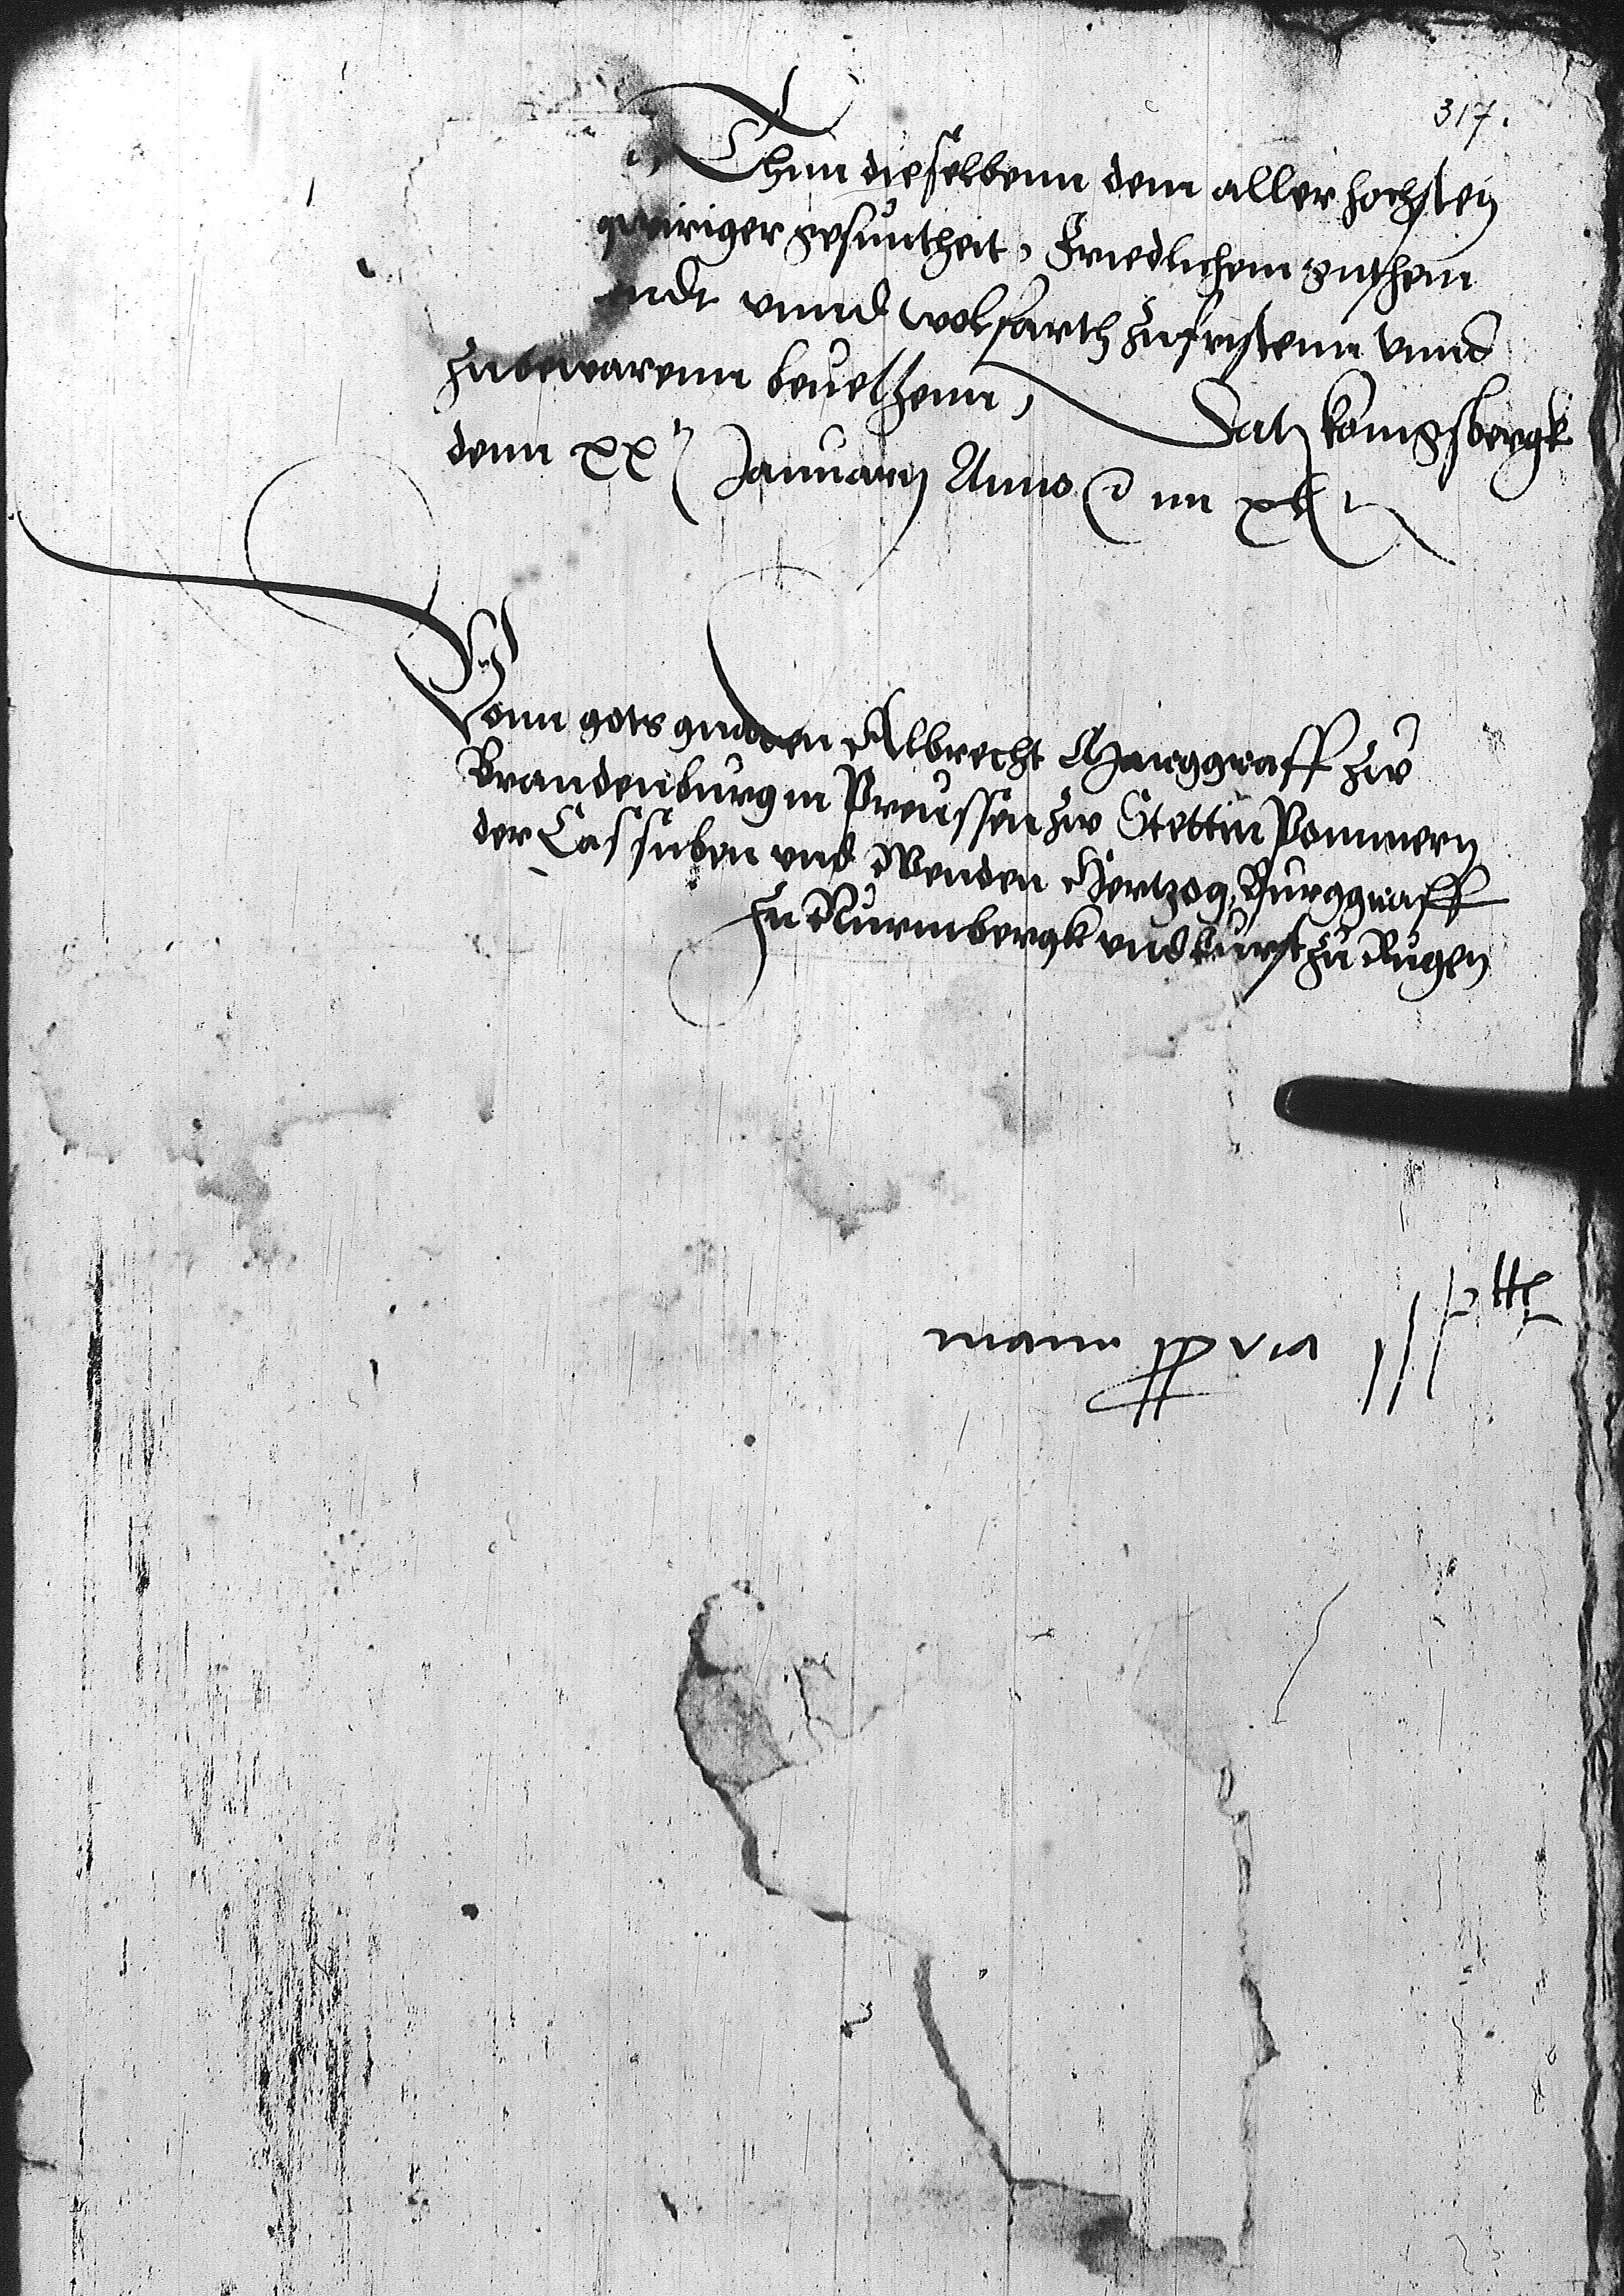 317.
Thun dieselbenn dem aller hochsten
gwiriger gesuntheit, Friedlichem guthem
vnnd wolfarth zufristenn vnnd
zubewarenn beuelhenn, Dat konigsbergk
denn xx Januarij Anno im xl
Vonn gots gnaden Albrecht Marggraff zw
Brandenburg in Preussen zw Stettin Pommern
der Cassuben vnd Wenden Hertzog, Burggraff
zu Nurmbergk vnd Furst zu Rugen
manu ppria sst